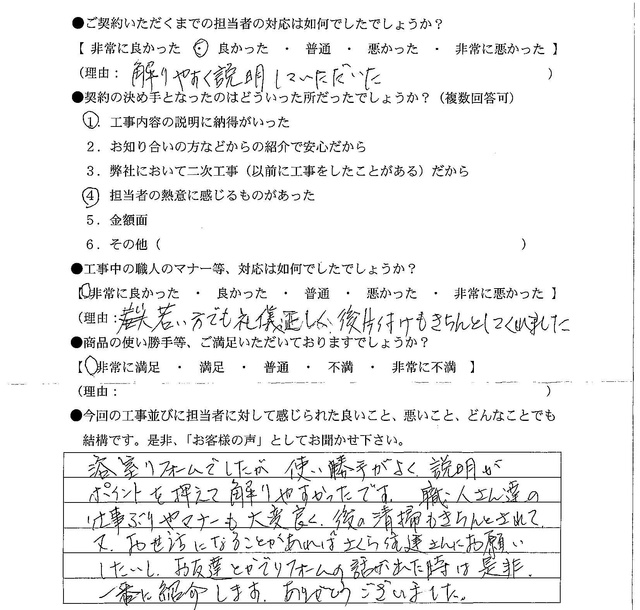 ●ご契約いただくまでの担当者の対応は如何でしたでしょうか？
【 非常に良かった ・ 良かった ・ 普通 ・ 悪かった ・ 非常に悪かった 】
（理由： 解りやすく説明していただいた ）
●契約の決め手となったのはどういった所だったでしょうか？（複数回答可）
１．工事内容の説明に納得がいった
２．お知り合いの方などからの紹介で安心だから
３．弊社において二次工事（以前に工事をしたことがある）だから
４．担当者の熱意に感じるものがあった
５．金額面
６．その他（ ）
●工事中の職人のマナー等、対応は如何でしたでしょうか？
【 非常に良かった ・ 良かった ・ 普通 ・ 悪かった ・ 非常に悪かった 】
（理由： 若い方でも礼儀正しく、後片付けもきちんとしてくれました
●商品の使い勝手等、ご満足いただいておりますでしょうか？
【 非常に満足 ・ 満足 ・ 普通 ・ 不満 ・ 非常に不満 】
（理由： ）
●今回の工事並びに担当者に対して感じられた良いこと、悪いこと、どんなことでも
結構です。是非、「お客様の声」としてお聞かせ下さい。
浴室リフォームでしたが 使い勝手がよく、説明が
ポイントを押えて解りやすかったです。 職人さん達の
仕事ぶりやマナーも大変良く、後の清掃もきちんとされて、
又、お世話になることがあればさくら住建さんにお願い
したいし、お友達とかでリフォームの話がでた時は是非、
一番に紹介します。ありがとうございました。